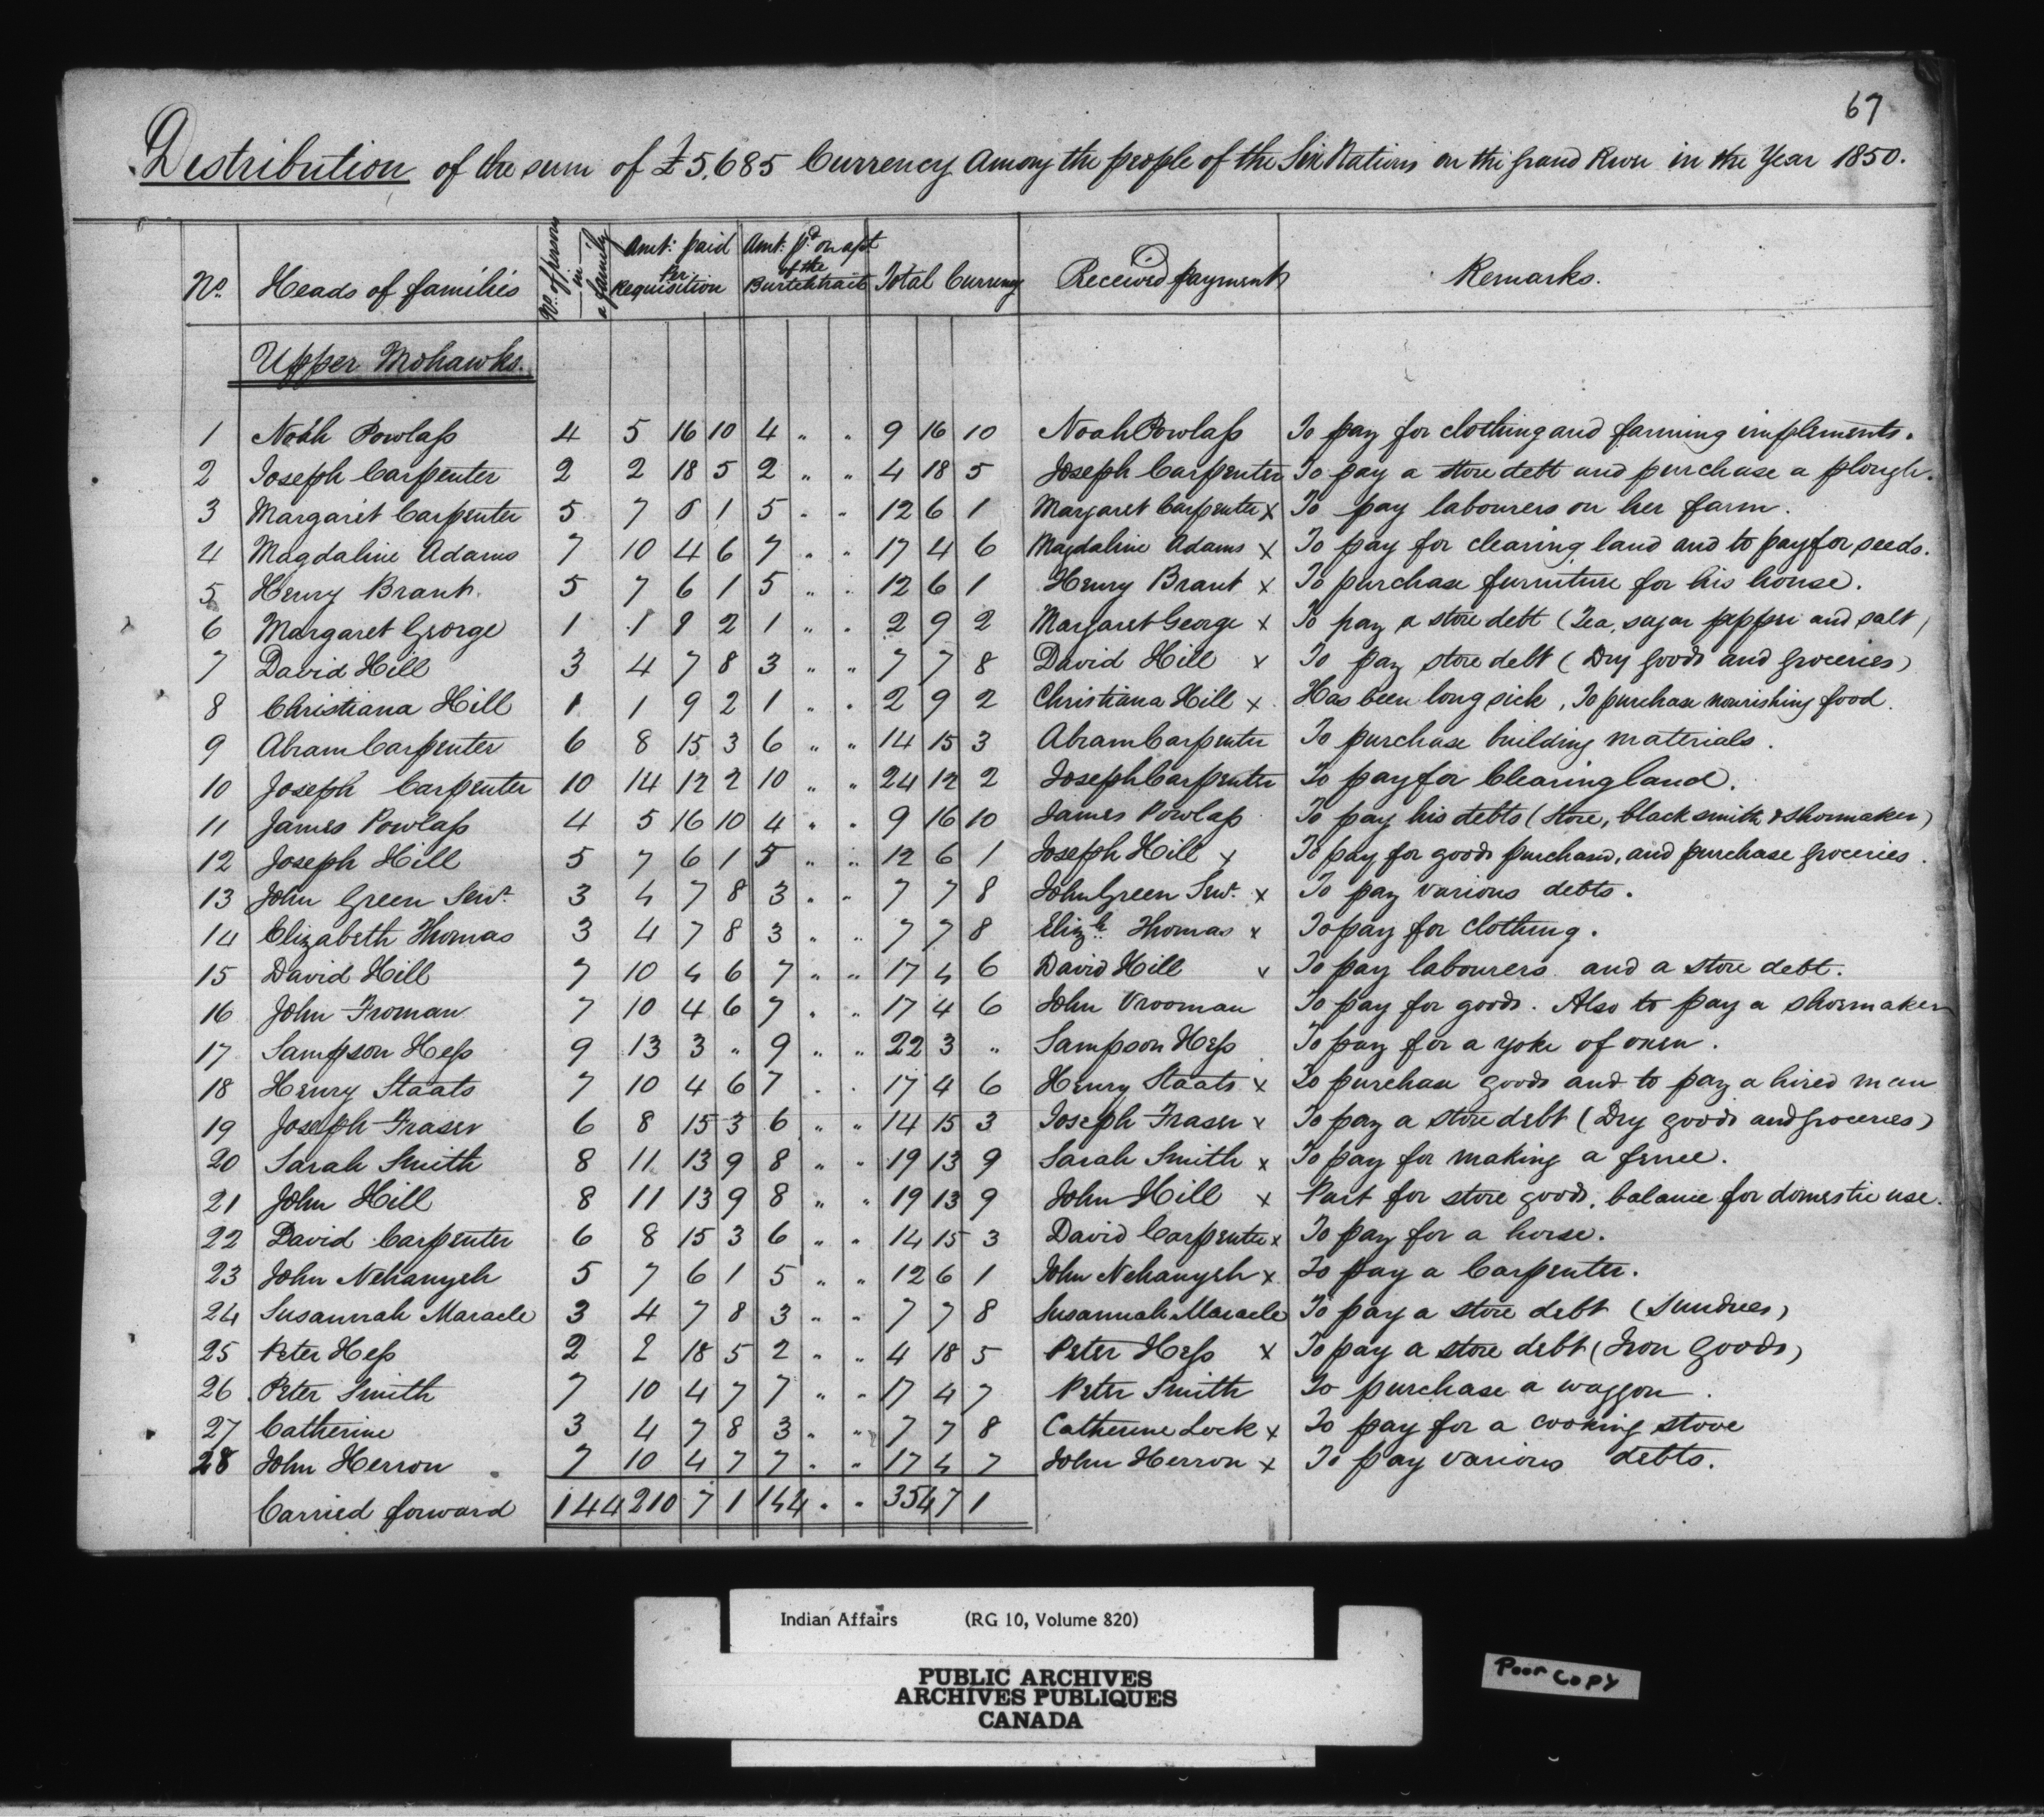 67
Distribution of the sum of £5,685 Currency among the people of the Six Nations on the Grand River in the Year 1850.
No. Heads of families No. of persons in a family Amt: paid per Requisition Amt: pd on apt of the Burtch tract Total Currency Received payment Remarks.
Upper Mohawks.
1 Noah Powlass 4 5 16 10 4 " " 9 16 10 Noah Powlass To pay for clothing and farming impliments.
2 Joseph Carpenter 2 2 18 5 2 " " 4 18 5 Joseph Carpenter To pay a store debt and purchase a plough.
3 Margaret Carpenter 5 7 6 1 5 " " 12 6 1 Margaret Carpenter x To pay labourers on her farm.
4 Magdaline Adams 7 10 4 6 7 " " 17 4 6 Magdaline Adams x To pay for clearing land and to pay for seeds.
5 Henry Brant 5 7 6 1 5 " " 12 6 1 Henry Brant x To purchase furniture for his house.
6 Margaret George 1 1 9 2 1 " " 2 9 2 Margaret George x To pay a store debt (Tea, sugar pepper and salt)
7 David Hill 3 4 7 8 3 " " 7 7 8 David Hill x To pay store debt (Dry goods and groceries)
8 Christiana Hill 1 1 9 2 1 " " 2 9 2 Christiana Hill x Has been long sick, To purchase nourishing food.
9 Abram Carpenter 6 8 15 3 6 " " 14 15 3 Abram Carpenter To purchase building materials.
10 Joseph Carpenter 10 14 12 2 10 " " 24 12 2 Joseph Carpenter To pay for Clearing land.
11 James Powlass 4 5 16 10 4 " " 9 16 10 James Powlass To pay his debts (Store, black smith & shoemaker)
12 Joseph Hill 5 7 6 1 5 " " 12 6 1 Joseph Hill x To pay for goods purchased, and purchase groceries.
13 John Green Senr. 3 4 7 8 3 " " 7 7 8 John Green Senr. x To pay various debts.
14 Elizabeth Thomas 3 4 7 8 3 " " 7 7 8 Elizh. Thomas x To pay for clothing.
15 David Hill 7 10 4 6 7 " " 17 4 6 David Hill x To pay labourers and a store debt.
16 John Froman 7 10 4 6 7 " " 17 4 6 John Vrooman To pay for goods. Also to pay a shoemaker
17 Sampson Hess 9 13 3 " 9 " " 22 3 " Sampson Hess To pay for a yoke of oxen.
18 Henry Staats 7 10 4 6 7 " " 17 4 6 Henry Staats x To purchase goods and to pay a hired man
19 Joseph Fraser 6 8 15 3 6 " " 14 15 3 Joseph Fraser x To pay a store debt (Dry goods and groceries)
20 Sarah Smith 8 11 13 9 8 " " 19 13 9 Sarah Smith x To pay for making a fence.
21 John Hill 8 11 13 9 8 " " 19 13 9 John Hill x Part for store goods, balance for domestic use.
22 David Carpenter 6 8 15 3 6 " " 14 15 3 David Carpenter x To pay for a horse.
23 John Nehanyeh 5 7 6 1 5 " " 12 6 1 John Nehanyeh x To pay a Carpenter.
24 Susannah Maracle 3 4 7 8 3 " " 7 7 8 Susannah Maracle To pay a store debt (Sundries)
25 Peter Hess 2 2 18 5 2 " " 4 18 5 Peter Hess x To pay a store debt (Iron Goods)
26 Peter Smith 7 10 4 7 7 " " 17 4 7 Peter Smith To purchase a waggon.
27 Catherine 3 4 7 8 3 " " 7 7 8 Catherine Lock x To pay for a cooking stove
28 John Herron 7 10 4 7 7 " " 17 4 7 John Herron x To pay various debts.
Carried forward 144 210 7 1 144 " " 354 7 1
Indian Affairs (RG 10, Volume 820)
PUBLIC ARCHIVES
ARCHIVES PUBLIQUES
CANADA
Poor Copy